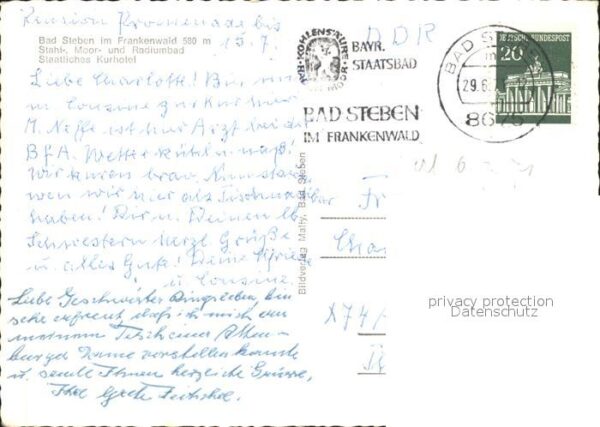 Pension Promenade bis
15.7.
Bad Steben im Frankenwald 580 m
Stahl-, Moor- und Radiumbad
Staatliches Kurhotel
Liebe Charlotte! Bin mit
m. Cousine zur Kur hier
M. Neffe ist hier Arzt bei der
BfA. Wetter kühl u. naß!
Wir kuren brav.
wen wir hier als Tischnachbar
haben! Dir u. Deinen lb
Schwestern herzl. Grüße
u. alles Gute! Deine
u. Cousine.
Liebe Geschwister bin
sehr erfreut, daß ich mich an
meinem Tisch einer Alten-
burger Dame vorstellen konnte
u. sende Ihnen herzliche Grüsse,
Ihre Grete
Bildverlag Bad Steben
KOHLENSÄURE
MOOR
BAYR.
STAATSBAD
BAD STEBEN
IM FRANKENWALD
DDR
BAD
29.6.
8675
DEUTSCHE BUNDESPOST
20
Fr
Char
X74
privacy protection
Datenschutz